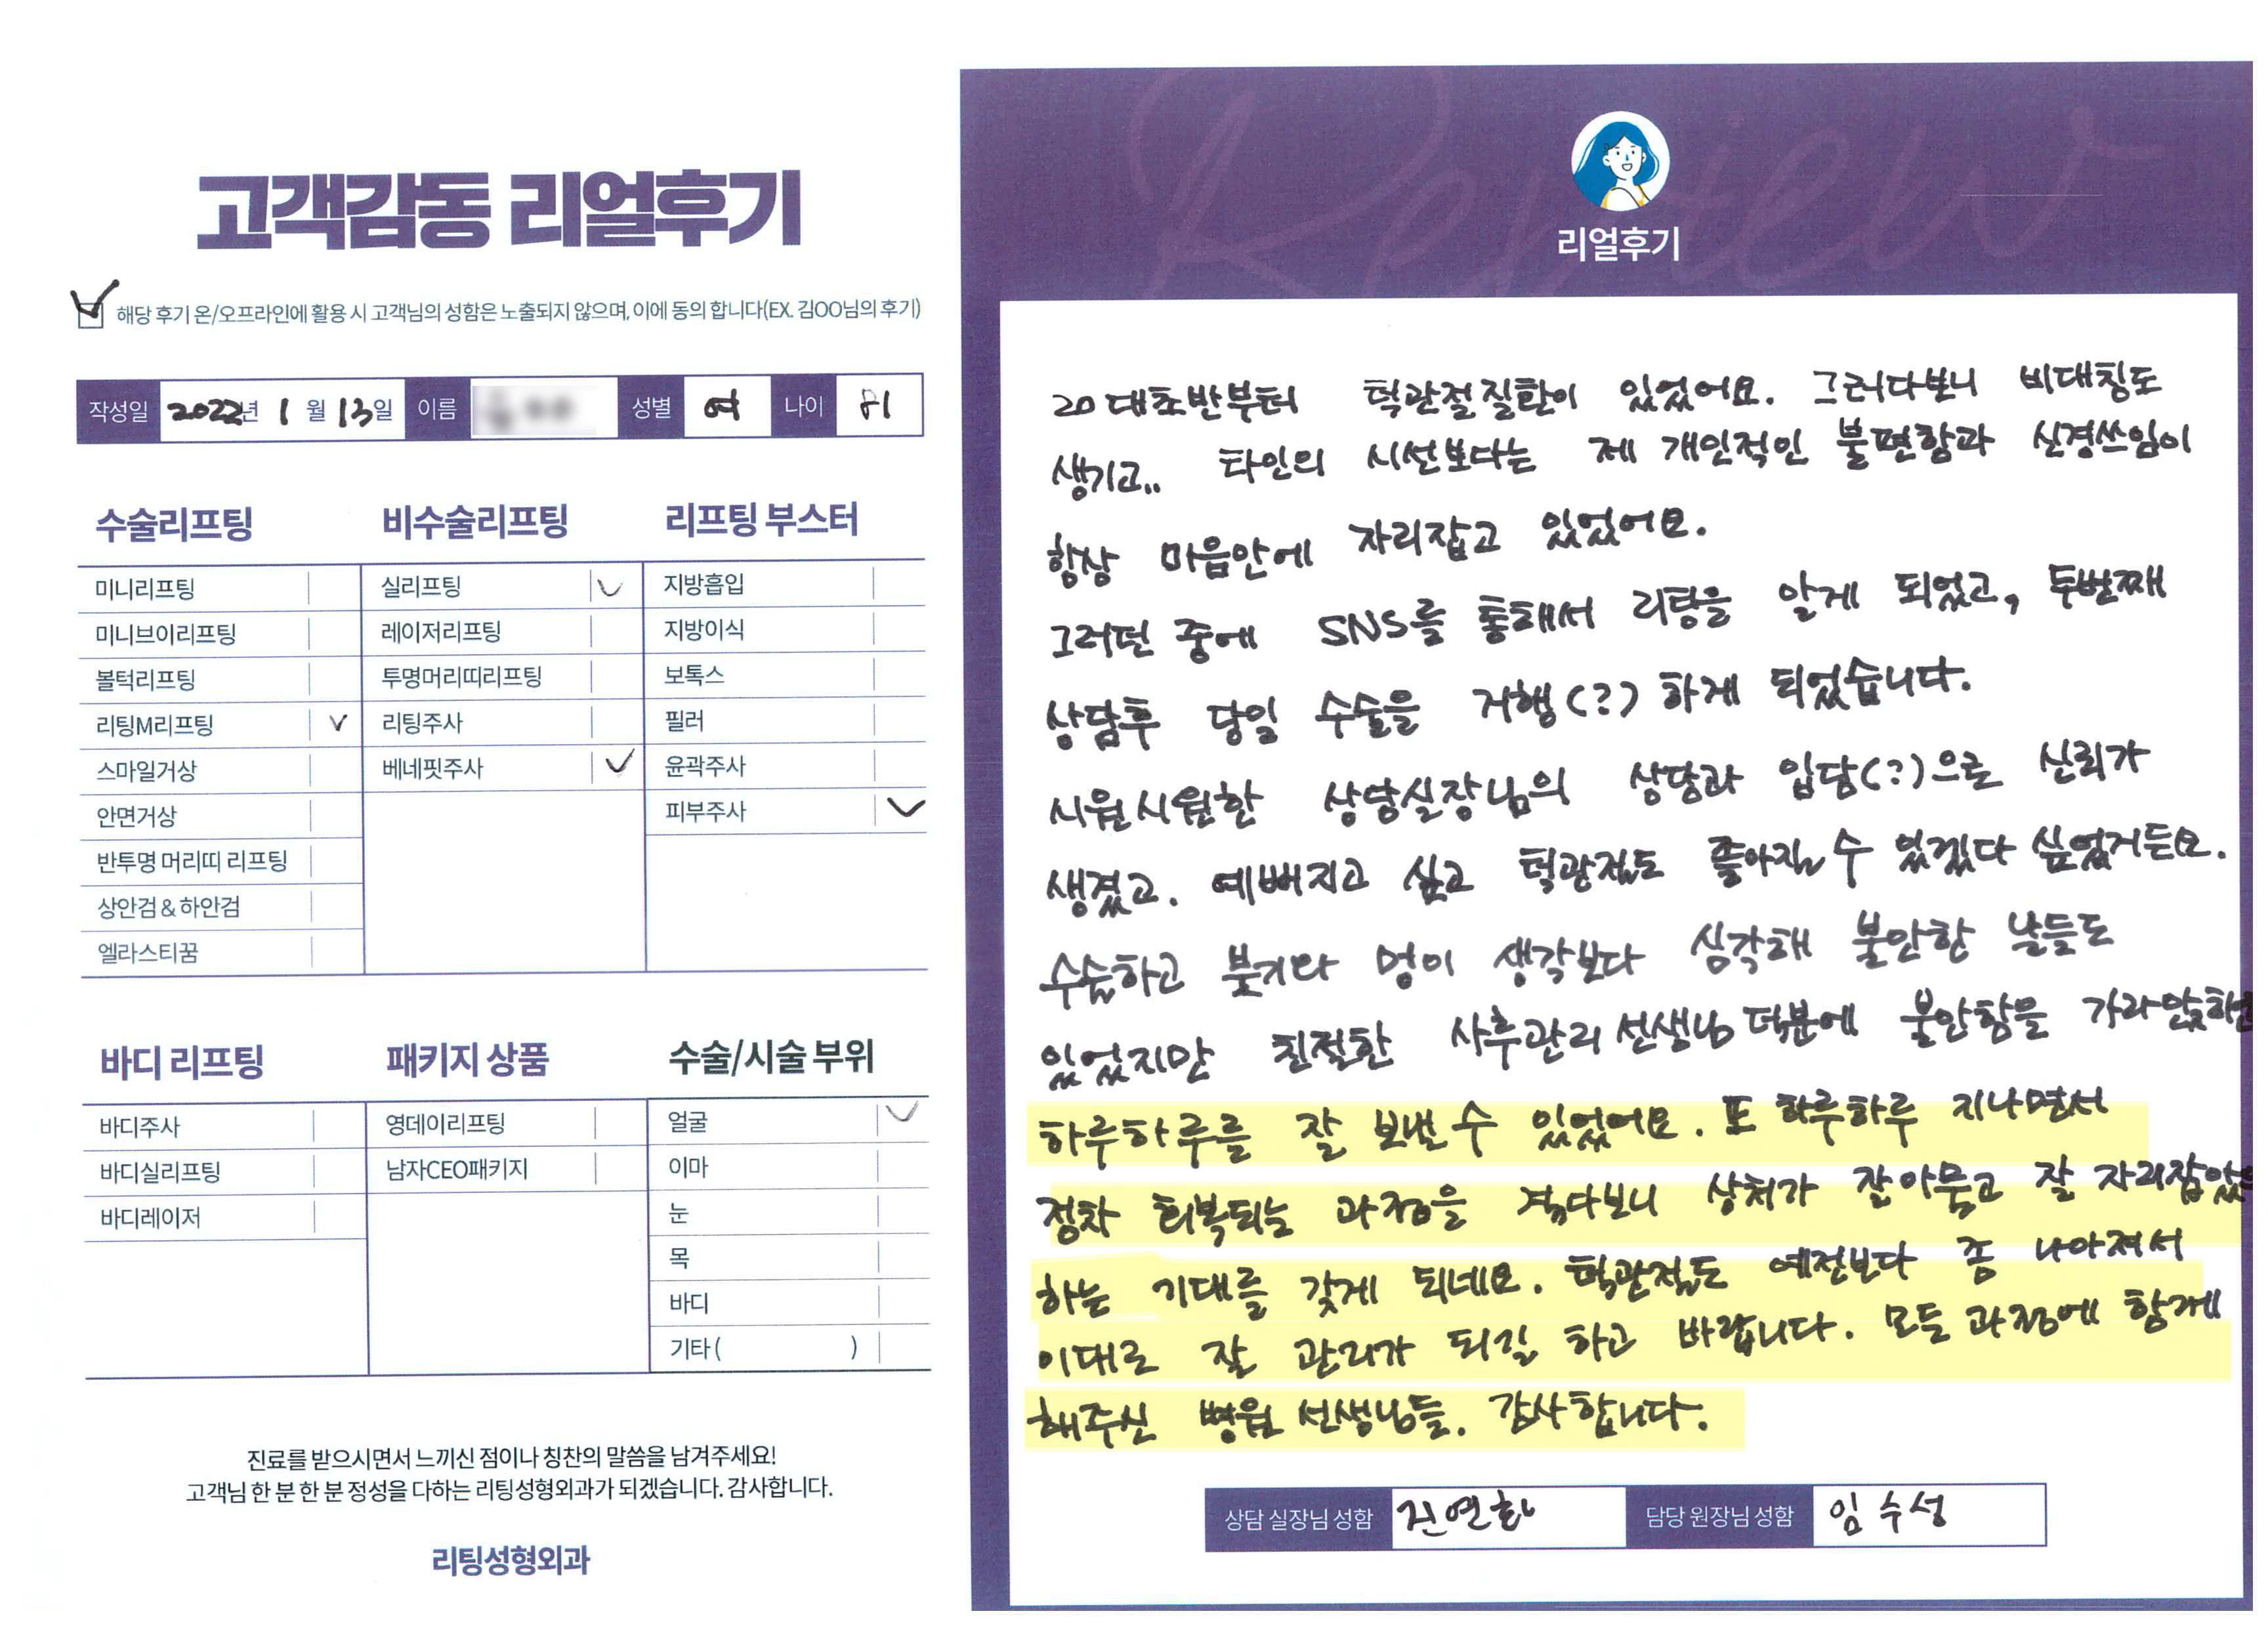 고객감동 리얼후기
해당 후기 온/오프라인에 활용 시 고객님의 성함은 노출되지 않으며, 이에 동의 합니다(EX. 김OO님의 후기)
작성일 2022년 1월 13일 이름 성별 여 나이 81
수술리프팅
미니리프팅
미니브이리프팅
볼턱리프팅
리팅M리프팅 ✓
스마일거상
안면거상
반투명 머리띠 리프팅
상안검 & 하안검
엘라스티꿈
비수술리프팅
실리프팅 ✓
레이저리프팅
투명머리띠리프팅
리팅주사
베네핏주사 ✓
리프팅 부스터
지방흡입
지방이식
보톡스
필러
윤곽주사
피부주사 ✓
바디 리프팅
바디주사
바디실리프팅
바디레이저
패키지 상품
영데이리프팅
남자CEO패키지
수술/시술 부위
얼굴 ✓
이마
눈
목
바디
기타 ( )
진료를 받으시면서 느끼신 점이나 칭찬의 말씀을 남겨주세요!
고객님 한 분 한 분 정성을 다하는 리팅성형외과가 되겠습니다. 감사합니다.
리팅성형외과
Review
리얼후기
20대초반부터 턱관절질환이 있었어요. 그러다보니 비대칭도
생기고.. 타인의 시선보다는 제 개인적인 불편함과 신경쓰임이
항상 마음안에 자리잡고 있었어요.
그러던 중에 SNS를 통해서 리팅을 알게 되었고, 두번째
상담후 당일 수술을 거행(?)하게 되었습니다.
시원시원한 상담실장님의 상담과 입담(?)으로 신뢰가
생겼고. 예뻐지고 싶고 턱관절도 좋아질 수 있겠다 싶었거든요.
수술하고 붓기와 멍이 생각보다 심각해 불안한 날들도
있었지만 친절한 사후관리 선생님 덕분에 불안함을 가라앉히면
하루하루를 잘 보낼 수 있었어요. 또 하루하루 지나면서
점차 회복되는 과정을 겪다보니 상처가 잘아물고 잘 자리잡았으
하는 기대를 갖게 되네요. 턱관절도 예전보다 좀 나아져서
이대로 잘 관리가 되길 하고 바랍니다. 모든 과정에 함께
해주신 병원 선생님들. 감사합니다.
상담 실장님 성함 진연화 담당 원장님 성함 임수성